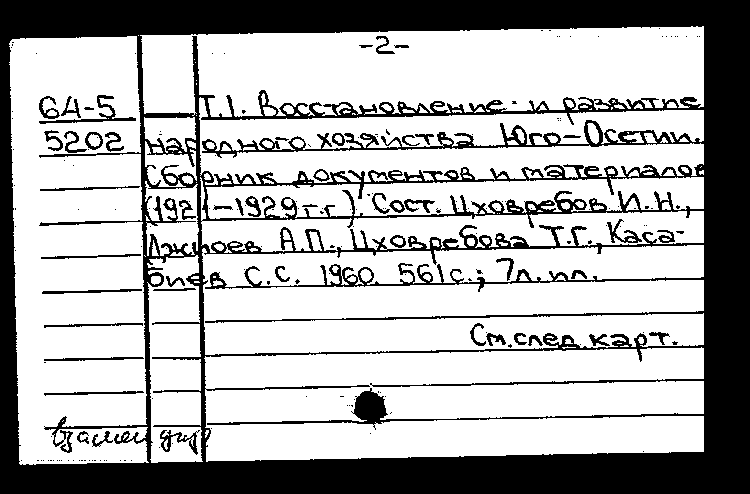 -2-
64-5 Т.1. Восстановление и развитие
5202 народного хозяйства Юго-Осетии.
Сборник документов и материалов
(1921-1929г.г.). Сост. Цховребов И.Н.,
Джиоев А.П., Цховребова Т.Г., Каса-
биев С.С. 1960. 561с.; 7л.ил.
См.след.карт.
взамен